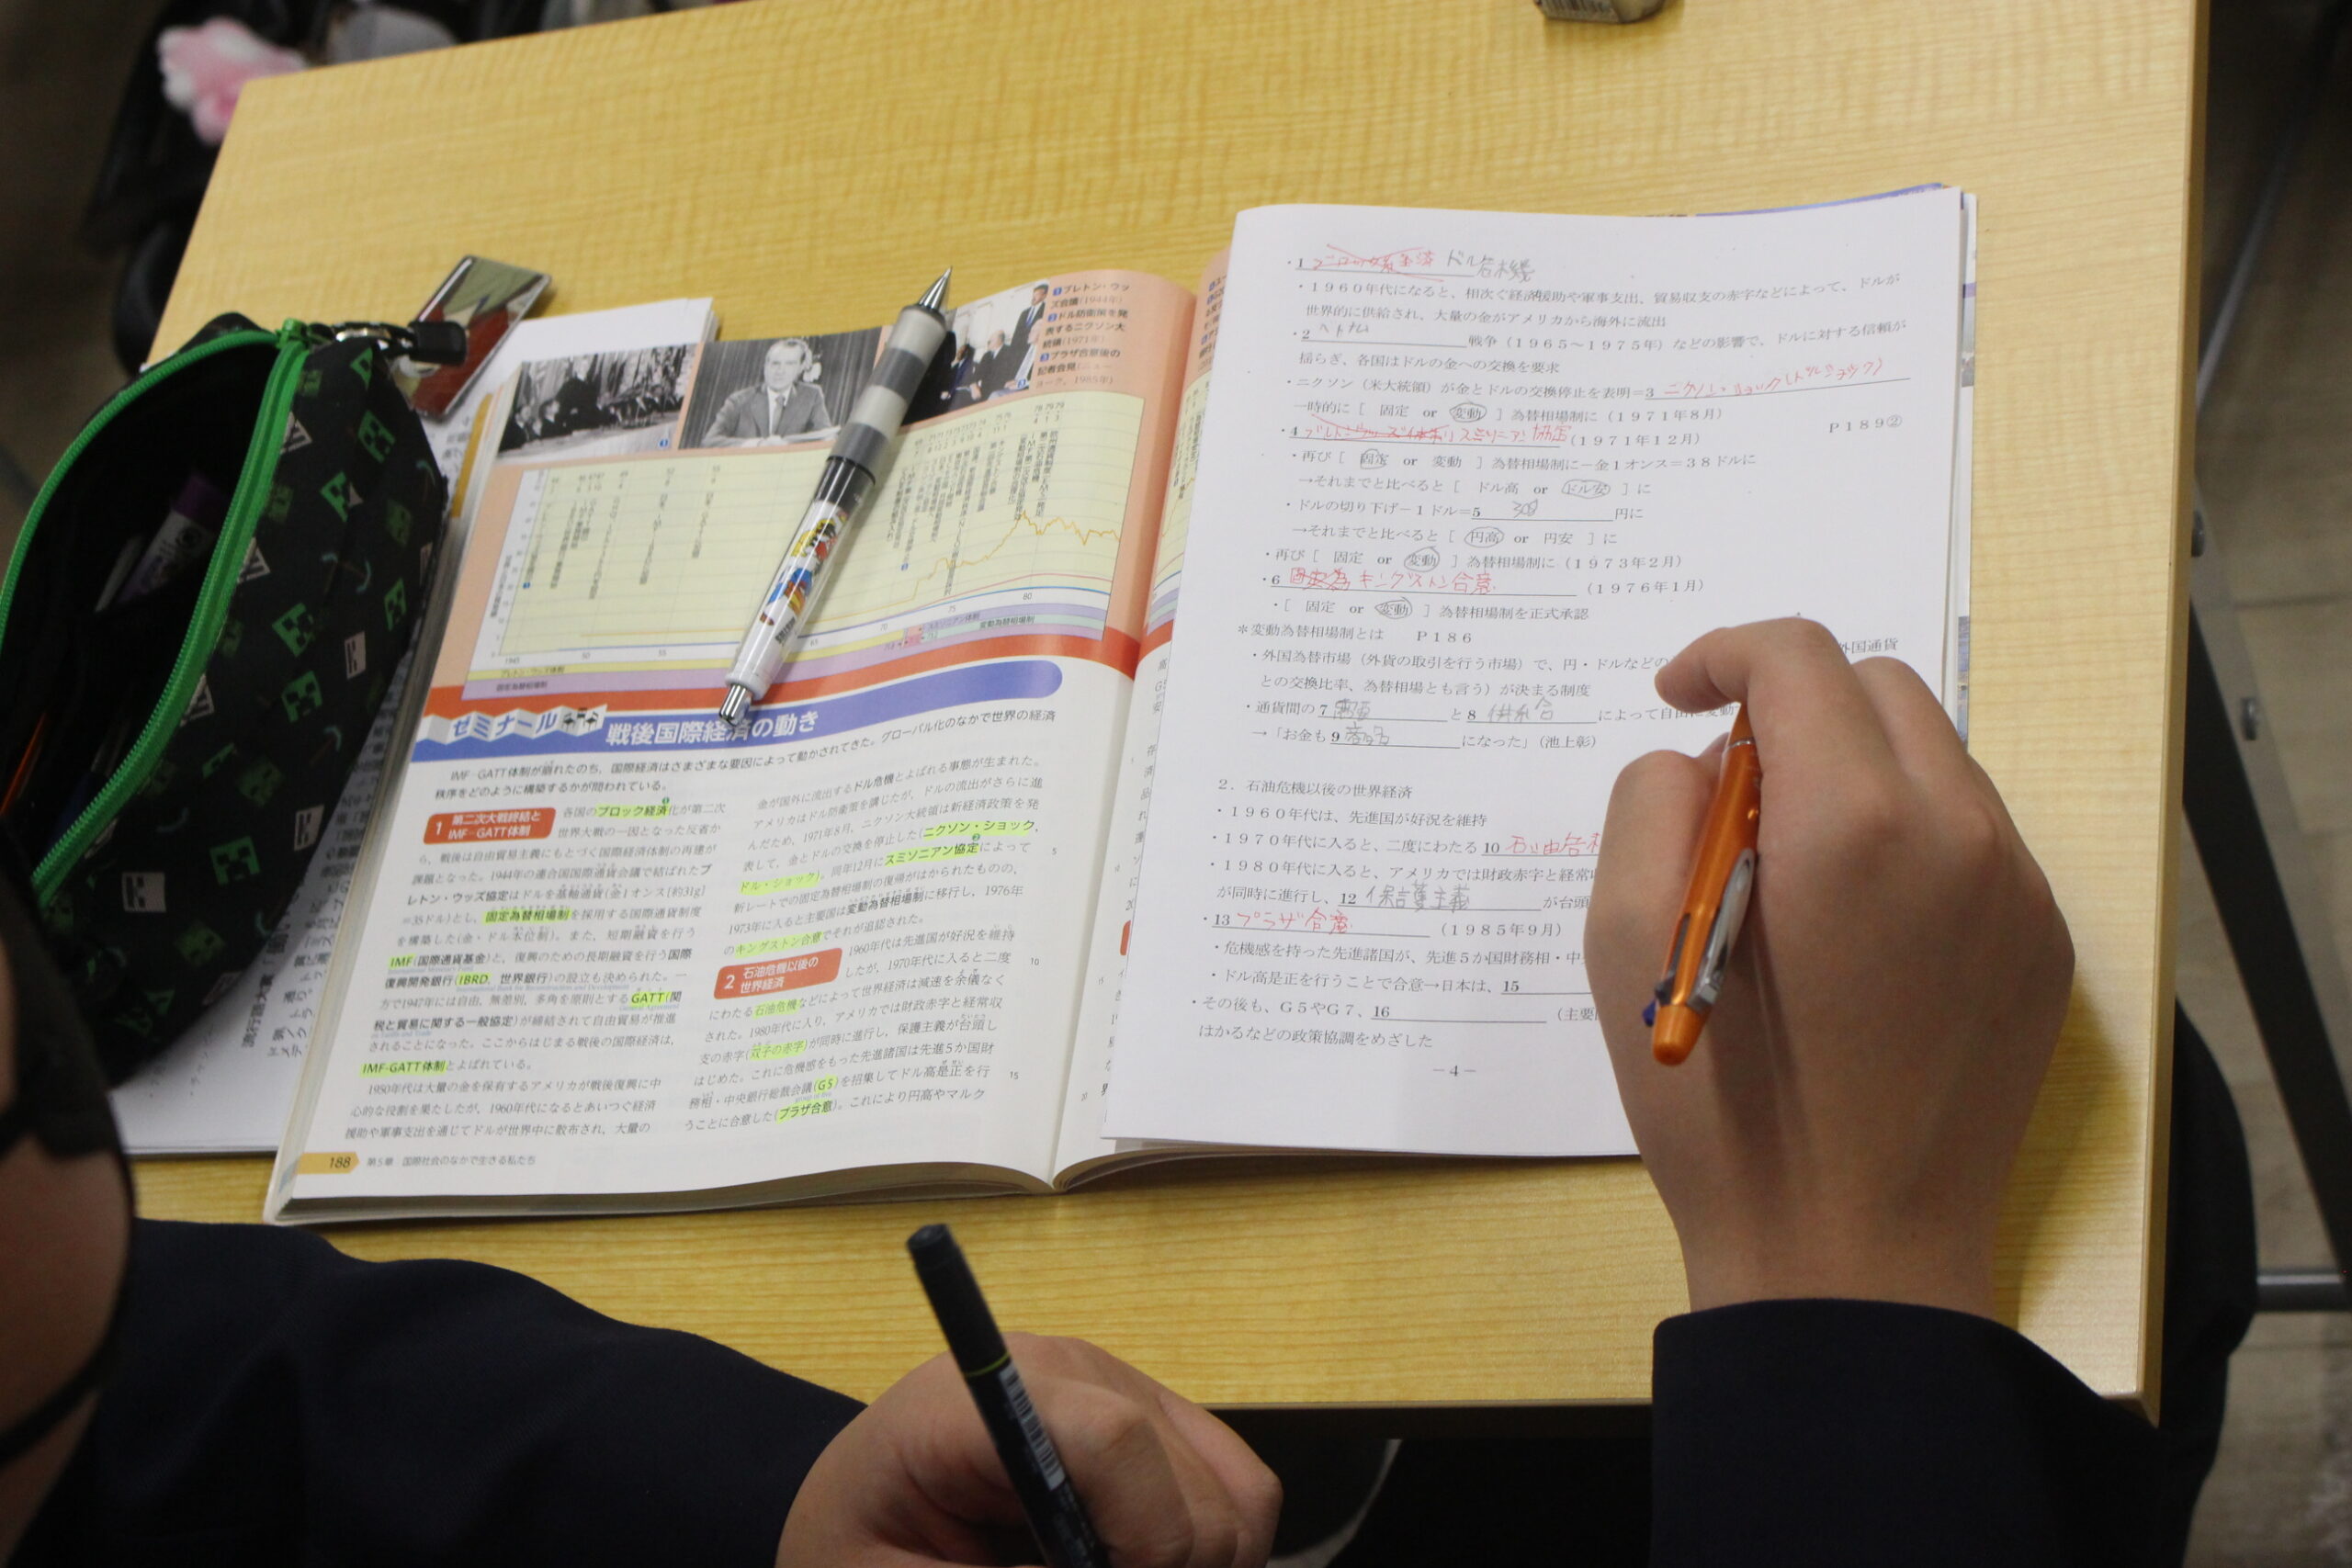 1 ブレトン・ウッ
ズ会議(1944年)
2 ドル防衛策を発
表するニクソン大
統領(1971年)
3 プラザ合意後の
記者会見(ニュー
ヨーク, 1985年)
1945 50 55 65 70 75 80
ブレトン=ウッズ体制
スミソニアン体制
固定為替相場制
変動為替相場制
ゼミナール 戦後国際経済の動き
IMF-GATT体制が崩れたのち,国際経済はさまざまな要因によって動かされてきた。グローバル化のなかで世界の経済
秩序をどのように構築するかが問われている。
1 第二次大戦終結と
IMF-GATT体制
各国のブロック経済化が第二次
世界大戦の一因となった反省か
ら,戦後は自由貿易主義にもとづく国際経済体制の再建が
課題となった。1944年の連合国国際通貨会議で結ばれたブ
レトン・ウッズ協定はドルを基軸通貨(金1オンス(約31g)
=35ドル)とし,固定為替相場制を採用する国際通貨制度
を構築した(金・ドル本位制)。また,短期融資を行う
IMF(国際通貨基金)と,復興のための長期融資を行う国際
復興開発銀行(IBRD, 世界銀行)の設立も決められた。一
方で1947年には自由,無差別,多角を原則とするGATT(関
税と貿易に関する一般協定)が締結されて自由貿易が推進
されることになった。ここからはじまる戦後の国際経済は,
IMF-GATT体制とよばれている。
1950年代は大量の金を保有するアメリカが戦後復興に中
心的な役割を果たしたが,1960年代になるとあいつぐ経済
援助や軍事支出を通じてドルが世界中に散布され,大量の
金が国外に流出するドル危機とよばれる事態が生まれた。
アメリカはドル防衛策を講じたが,ドルの流出がさらに進
んだため,1971年8月,ニクソン大統領は新経済政策を発
表して,金とドルの交換を停止した(ニクソン・ショック,
ドル・ショック)。同年12月にスミソニアン協定によって
新レートでの固定為替相場制の復帰がはかられたものの,
1973年に入ると主要国は変動為替相場制に移行し,1976年
のキングストン合意でそれが追認された。
2 石油危機以後の
世界経済
1960年代は先進国が好況を維持
したが,1970年代に入ると二度
にわたる石油危機などによって世界経済は減速を余儀なく
された。1980年代に入り,アメリカでは財政赤字と経常収
支の赤字(双子の赤字)が同時に進行し,保護主義が台頭し
はじめた。これに危機感をもった先進諸国は先進5か国財
務相・中央銀行総裁会議(G5)を招集してドル高是正を行
うことに合意した(プラザ合意)。これにより円高やマルク
5
10
15
188 第5章 国際社会のなかで生きる私たち
・1 ブロック経済 ドル危機
・1960年代になると、相次ぐ経済援助や軍事支出、貿易収支の赤字などによって、ドルが
世界的に供給され、大量の金がアメリカから海外に流出
・2 ベトナム 戦争(1965~1975年)などの影響で、ドルに対する信頼が
揺らぎ、各国はドルの金への交換を要求
・ニクソン(米大統領)が金とドルの交換停止を表明=3 ニクソン・ショック(ドル・ショック)
一時的に[ 固定 or 変動 ]為替相場制に(1971年8月)
・4 ブレトンウッズ体制 スミソニアン協定 (1971年12月) P189②
・再び[ 固定 or 変動 ]為替相場制に-金1オンス=38ドルに
→それまでと比べると[ ドル高 or ドル安 ]に
・ドルの切り下げ-1ドル=5 308 円に
→それまでと比べると[ 円高 or 円安 ]に
・再び[ 固定 or 変動 ]為替相場制に(1973年2月)
・6 固定為 キングストン合意 (1976年1月)
・[ 固定 or 変動 ]為替相場制を正式承認
*変動為替相場制とは P186
・外国為替市場(外貨の取引を行う市場)で、円・ドルなどの 外国通貨
との交換比率、為替相場とも言う)が決まる制度
・通貨間の 7 需要 と 8 供給 によって自由に変動
→「お金も 9 商品 になった」(池上彰)
2.石油危機以後の世界経済
・1960年代は、先進国が好況を維持
・1970年代に入ると、二度にわたる 10 石油危
・1980年代に入ると、アメリカでは財政赤字と経常
が同時に進行し、12 保護主義 が台頭
・13 プラザ合意 (1985年9月)
・危機感を持った先進諸国が、先進5か国財務相・中
・ドル高是正を行うことで合意→日本は、15
・その後も、G5やG7、16 (主要
はかるなどの政策協調をめざした
-4-